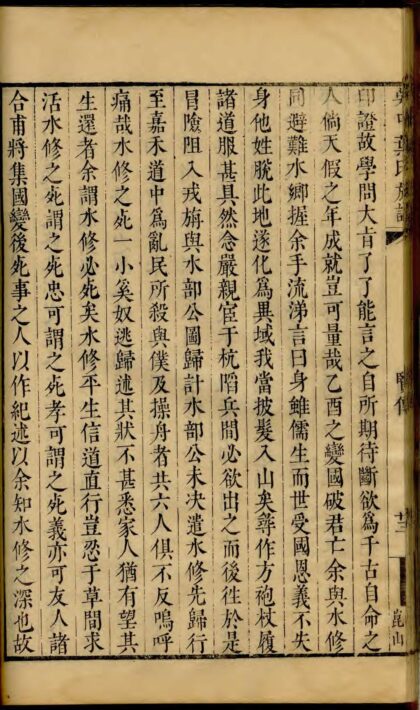 印證故學問大旨了了能言之自所期待斷欲爲千古自命之
人倘天假之年成就豈可量哉乙酉之變國破君亡余與水修
同避難水鄉握余手流涕言曰身雖儒生而世受國恩義不失
身他姓脫此地遂化爲異域我當披髮入山矣尋作方袍杖履
諸道服甚具然念嚴親宦于杭陷兵間必欲出之而後徃於是
冒險阻入戎旃與水部公圖歸計水部公未决遣水修先歸行
至嘉禾道中爲亂民所殺與僕及操舟者共六人俱不反嗚呼
痛哉水修之死一小奚奴逃歸述其狀不甚悉家人猶有望其
生還者余謂水修必死矣水修平生信道直行豈忍于草間求
活水修之死謂之死忠可謂之死孝可謂之死義亦可友人諸
合甫將集國變後死事之人以作紀述以余知水修之深也故
崑山